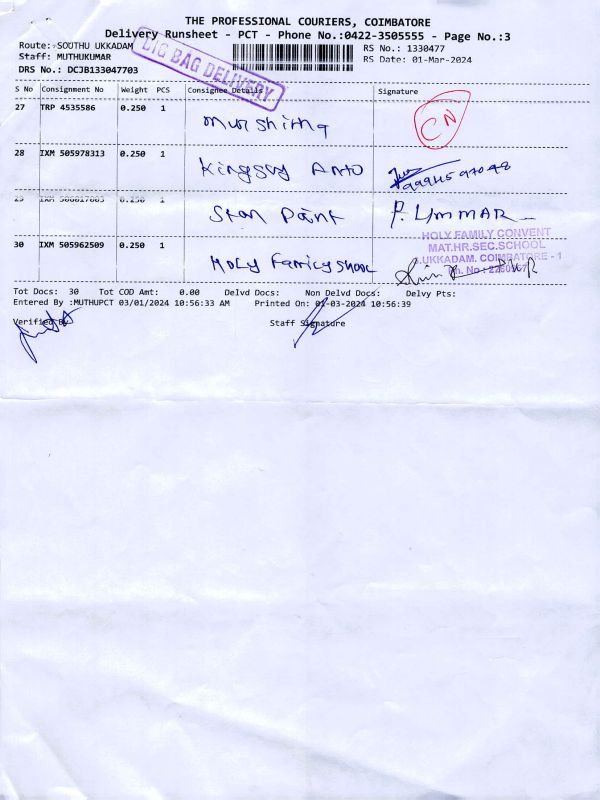 THE PROFESSIONAL COURIERS, COIMBATORE
Delivery Runsheet - PCT - Phone No.:0422-3505555 - Page No.:3
Route: SOUTHU UKKADAM
RS No.: 1330477
Staff: MUTHUKUMAR
RS Date: 01-Mar-2024
DRS No.: DCJB133047703
BIG BAG DELIVERY
S No Consignment No Weight PCS Consignee Details Signature
27 TRP 4535586 0.250 1
CN
28 IXM 505978313 0.250 1
Kingsly Anto
29 IXM 0.250 1
Star Paint P. UMMAR
HOLY FAMILY CONVENT
MAT.HR.SEC.SCHOOL
UKKADAM. COIMBATORE - 1
30 IXM 505962509 0.250 1
Holy Family
Tot Docs: 30 Tot COD Amt: 0.00 Delvd Docs: Non Delvd Docs: Delvy Pts:
Entered By :MUTHUPCT 03/01/2024 10:56:33 AM Printed On: 01-03-2024 10:56:39
Verified By Staff Signature